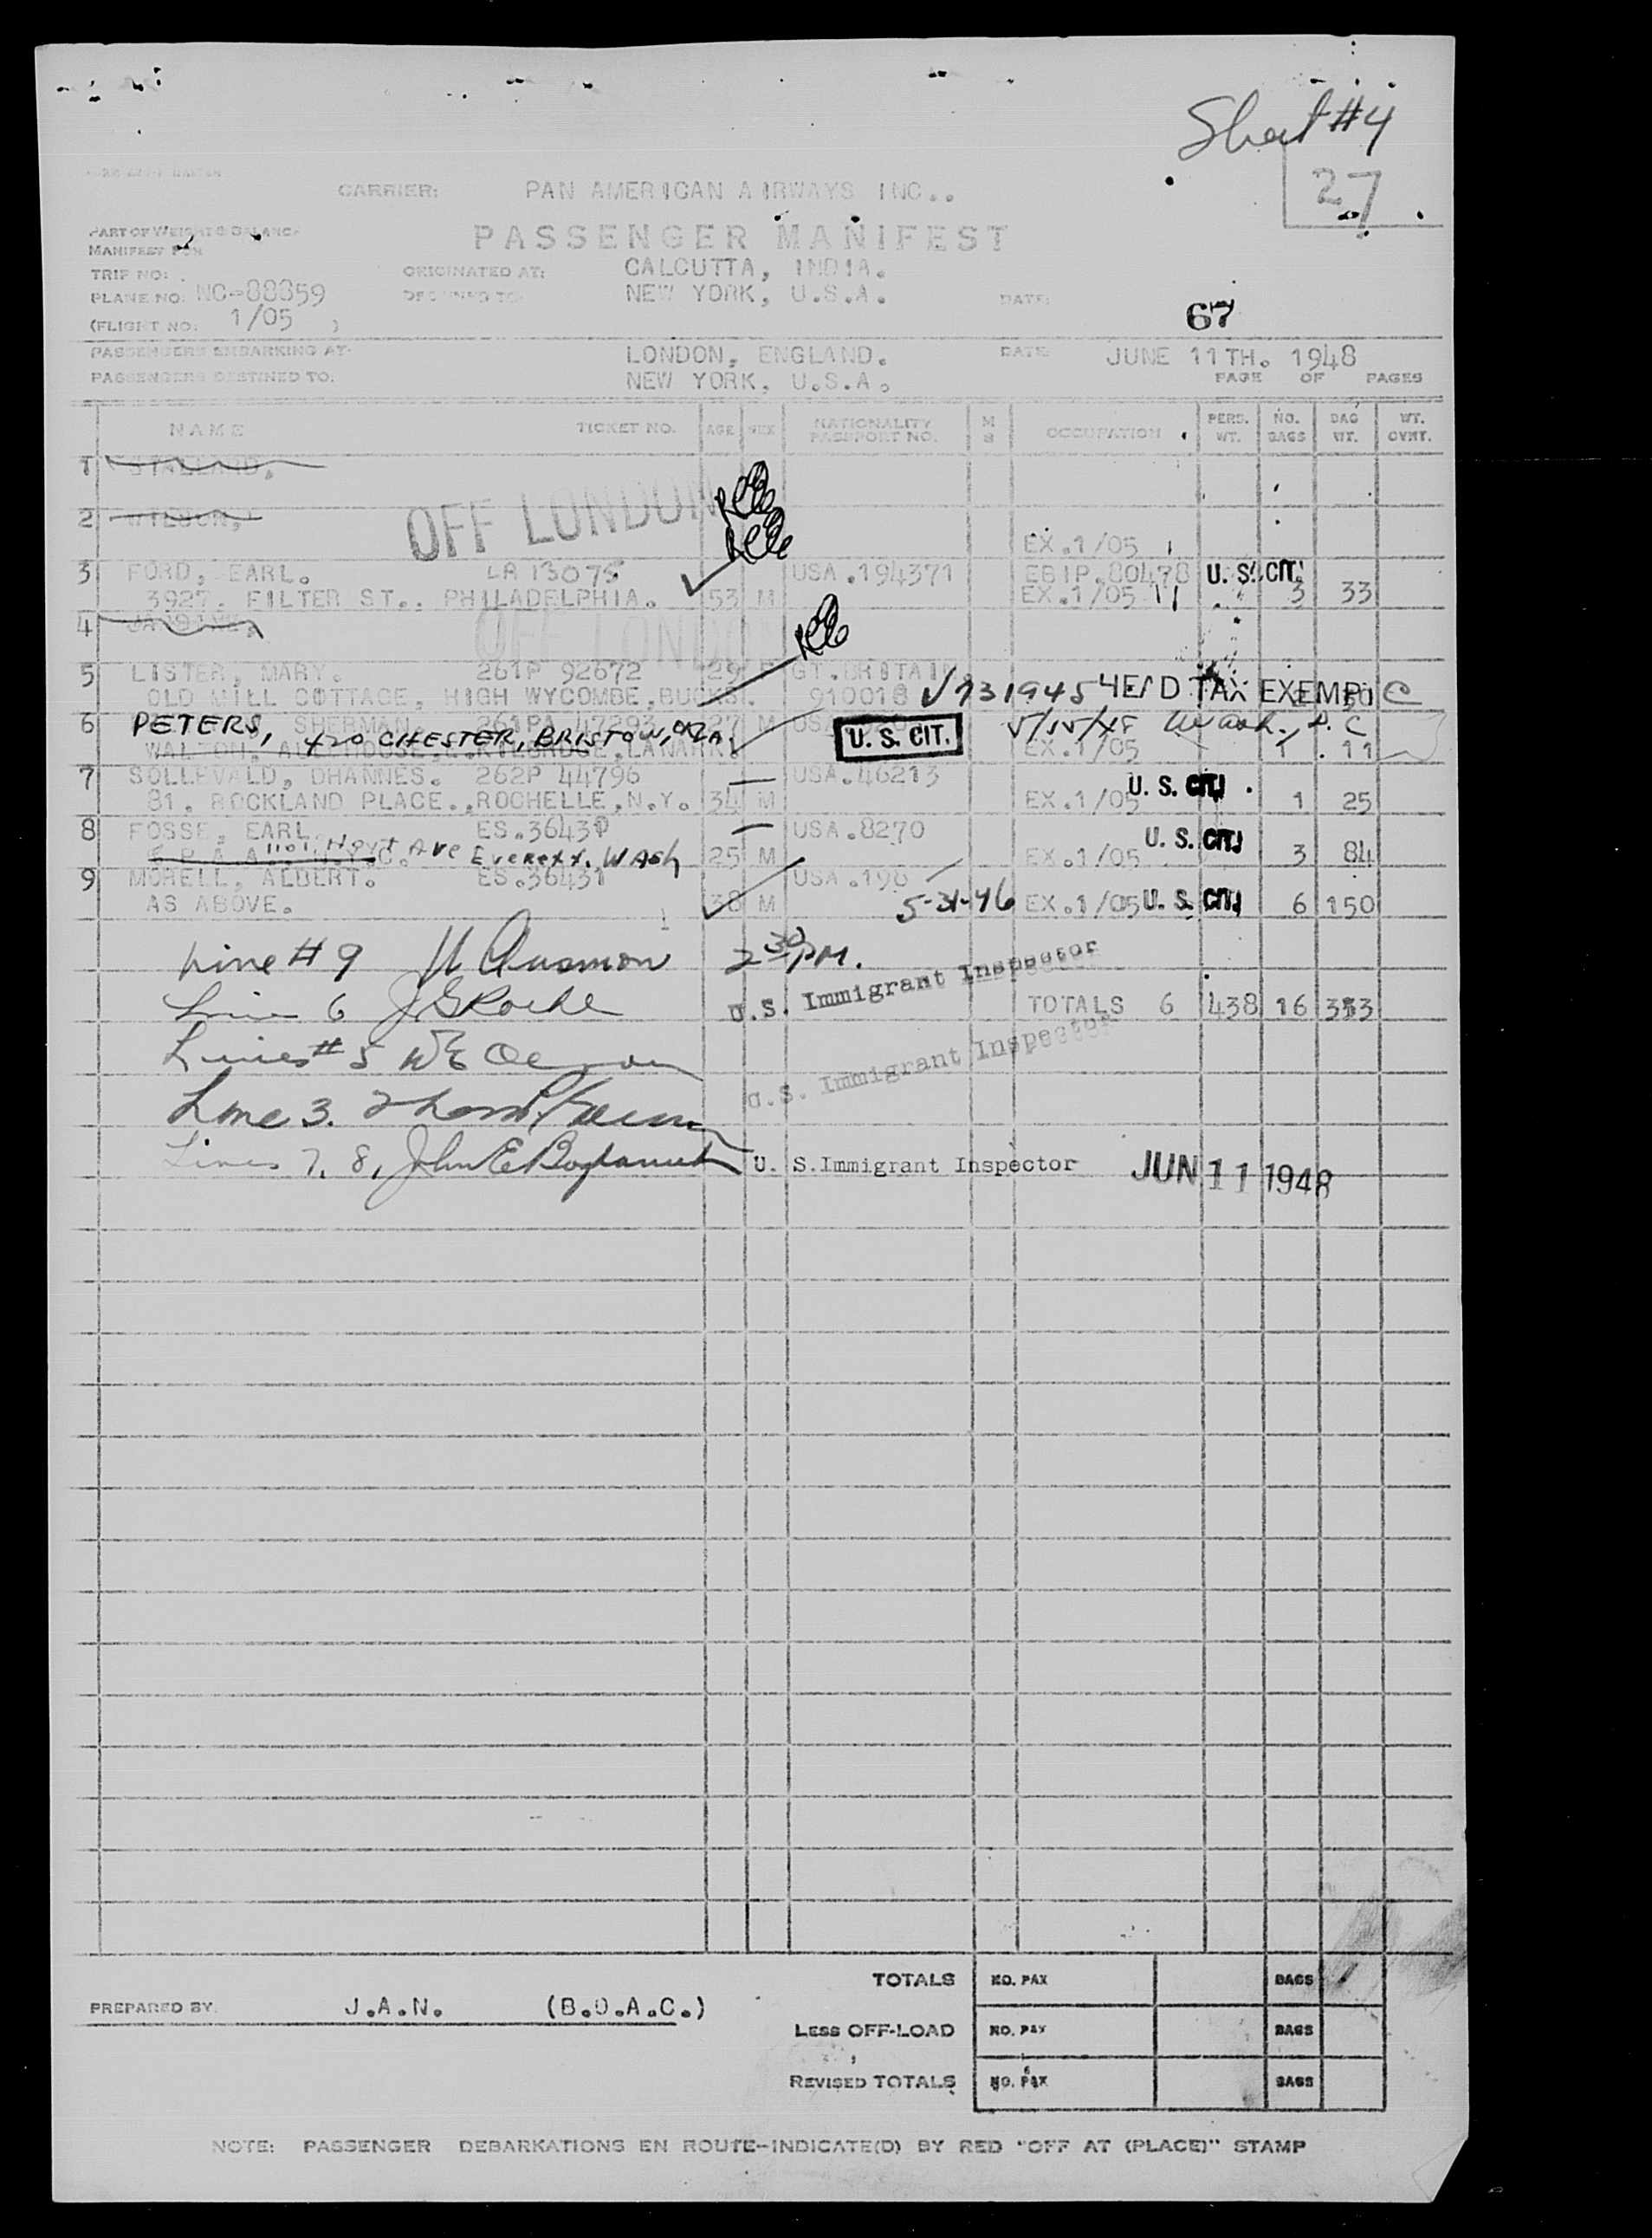 Sheet #4
27
CARRIER: PAN AMERICAN AIRWAYS INC..
PART OF WEIGHT & BALANCE
MANIFEST FOR
PASSENGER MANIFEST
TRIP NO:
ORIGINATED AT: CALCUTTA, INDIA.
PLANE NO. NC-88859
NEW YORK, U.S.A.
DATE:
67
(FLIGHT NO. 1/05 )
PASSENGERS EMBARKING AT: LONDON, ENGLAND. DATE JUNE 11TH. 1948
PASSENGERS DESTINED TO: NEW YORK, U.S.A. PAGE OF PAGES
NAME TICKET NO. AGE SEX NATIONALITY PASSPORT NO. M S OCCUPATION PERS. WT. NO. BAGS BAG WT. WT. OVNT.
1
2
OFF LONDON
EX.1/05
3 FORD, EARL. LA 13075 USA.194371 EBIP.80478 U. S. CIT.
3927. FILTER ST.. PHILADELPHIA. 53 M EX.1/05 3 33
4
OFF LONDON
5 LISTER, MARY. 261P 92672 29 GT.BRITAIN
OLD MILL COTTAGE, HIGH WYCOMBE, BUCKS. 910018 931945 HEAD TAX EXEMPT
6 PETERS, SHERMAN. 261PA 47293 27 M
420 CHESTER, BRISTOW, OKLA. U. S. CIT. Wash., D. C
EX.1/05 1 11
7 SOLLEVALD, DHANNES. 262P 44796 USA.46213
81. ROCKLAND PLACE., ROCHELLE, N.Y. 34 M EX.1/05 U. S. CIT. 1 25
8 FOSSE, EARL. ES.36430 USA.8270
1101 Hoyt Ave Everett. Wash 25 M EX.1/05 U. S. CIT. 3 84
9 MORELL, ALBERT. ES.36431 USA.190
AS ABOVE. 38 M 5-31-46 EX.1/05 U. S. CIT. 6 150
Line #9 2 30 PM.
U.S. Immigrant Inspector
Line 6 J G Roche
TOTALS 6 438 16 353
Lines #5
U.S. Immigrant Inspector
Line 3.
Lines 7, 8, John E U. S. Immigrant Inspector JUN 11 1948
TOTALS NO. PAX BAGS
PREPARED BY. J.A.N. (B.O.A.C.)
LESS OFF-LOAD NO. PAX BAGS
REVISED TOTALS NO. PAX BAGS
NOTE: PASSENGER DEBARKATIONS EN ROUTE-INDICATE(D) BY RED "OFF AT (PLACE)" STAMP